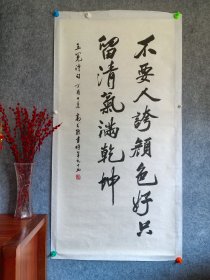 不要人誇顔色好只
留清氣滿乾坤
王冕詩句 丁酉